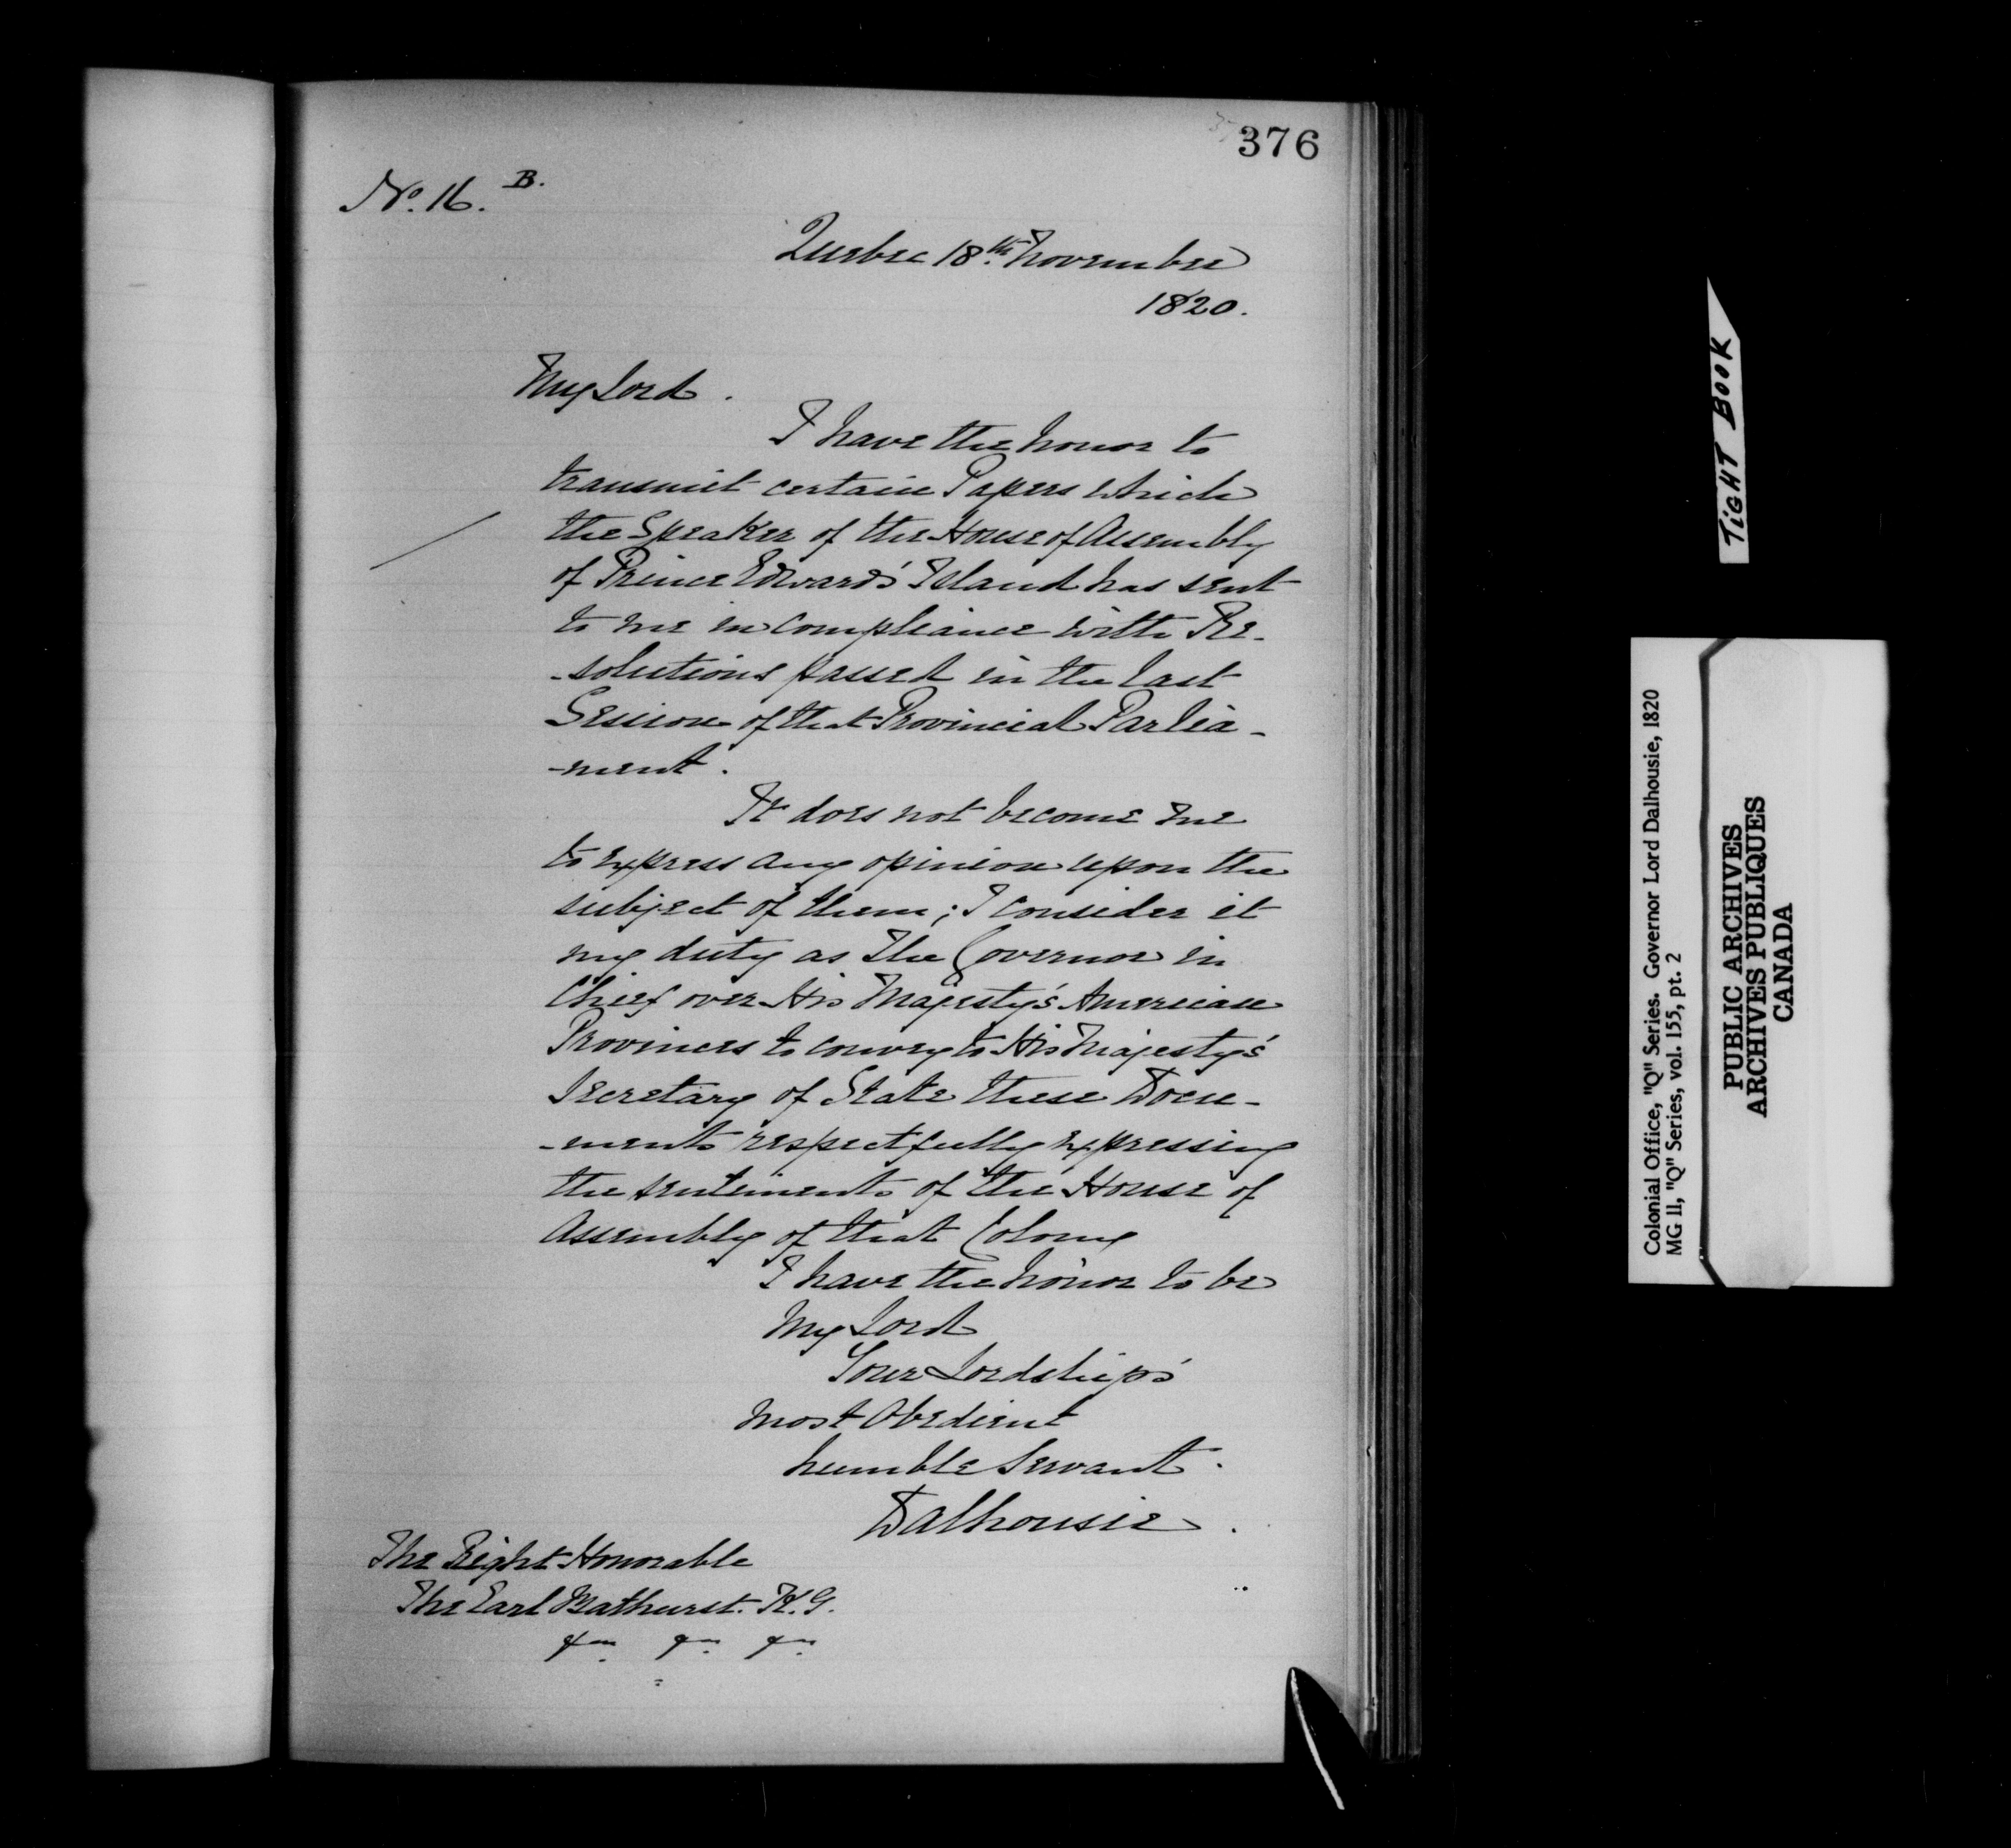 376
No. 16. B.
Quebec 18th. November
1820.
My Lord.
I have the honor to
transmit certain Papers which
the Speaker of the House of Assembly
of Prince Edward's Island has sent
to me in compliance with Re-
-solutions passed in the last
Session of that Provincial Parlia-
-ment.
It does not become me
to express any opinion upon the
subject of them; I consider it
my duty as the Governor in
Chief over His Majesty's American
Provinces to convey to His Majesty's
Secretary of State these Docu-
-ments respectfully expressing
the sentiments of the House of
Assembly of that Colony
I have the honor to be
My Lord
Your Lordship's
most Obedient
humble Servant.
Dalhousie.
The Right Honorable
The Earl Bathurst. K.G.
TIGHT BOOK
Colonial Office, "Q" Series. Governor Lord Dalhousie, 1820
MG 11, "Q" Series, vol. 155, pt. 2
PUBLIC ARCHIVES
ARCHIVES PUBLIQUES
CANADA